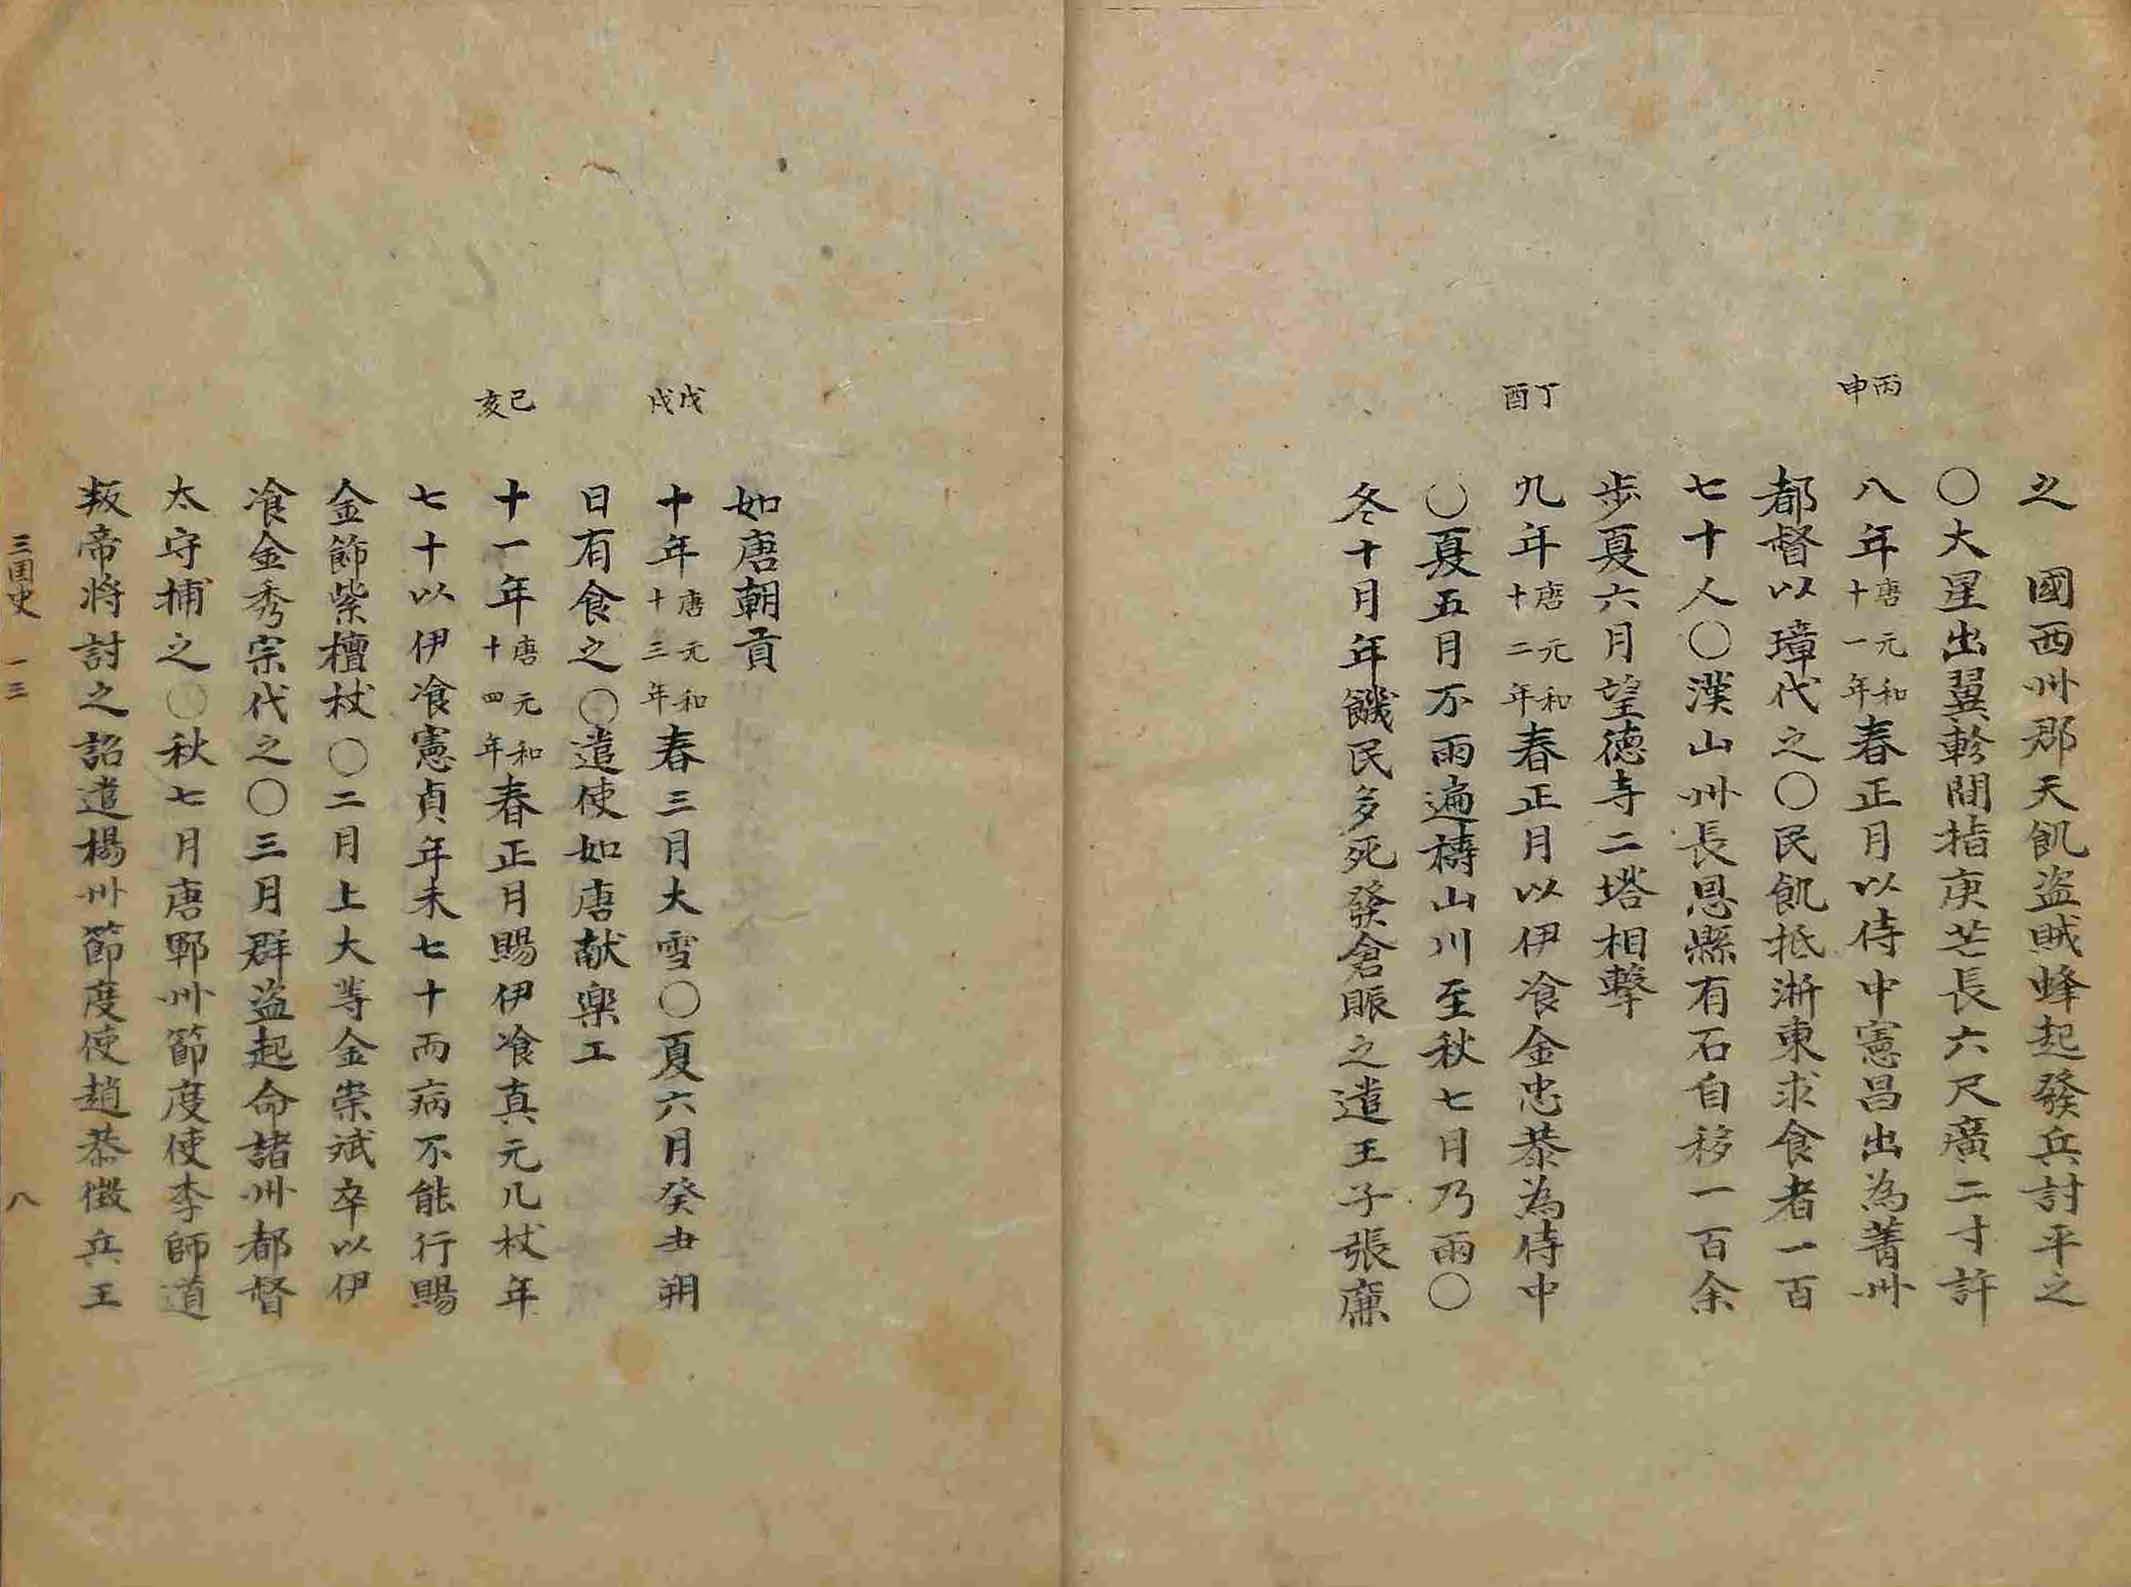 之　國西州郡天飢盜賊蜂起發兵討平之
〇大星出翼軫間指庚芒長六尺廣二寸許
丙申
八年唐元和十一年春正月以侍中憲昌出為菁州
都督以璋代之〇民飢抵浙東求食者一百
七十人〇漢山州長恩縣有石自移一百余
步夏六月望德寺二塔相擊
丁酉
九年唐元和十二年春正月以伊飡金忠恭為侍中
〇夏五月不雨遍禱山川至秋七月乃雨〇
冬十月年饑民多死發倉賑之遣王子張廉
如唐朝貢
戊戌
十年唐元和十三年春三月大雪〇夏六月癸丑朔
日有食之〇遣使如唐献楽工
己亥
十一年唐元和十四年春正月賜伊飡真元几杖年
七十以伊飡憲貞年未七十而病不能行賜
金飾紫檀杖〇二月上大等金崇斌卒以伊
飡金秀宗代之〇三月群盗起命諸州都督
太守捕之〇秋七月唐鄆州節度使李師道
叛帝将討之詔遣楊州節度使趙恭徵兵王
三国史　一三　八